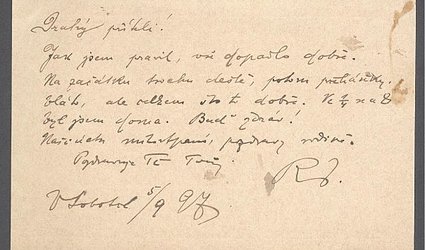 Drahý příteli!
Jak jsem pravil, vše dopadlo dobře.
Na začátku trochu deště, potom přeháňky,
bláto, ale celkem šlo to dobře. Ve ½ na 8
byl jsem doma. Buď zdráv!
milostpaní, pozdravy rodině.
Pozdravuje Tě Tvůj
V Sobotce 5/9 97